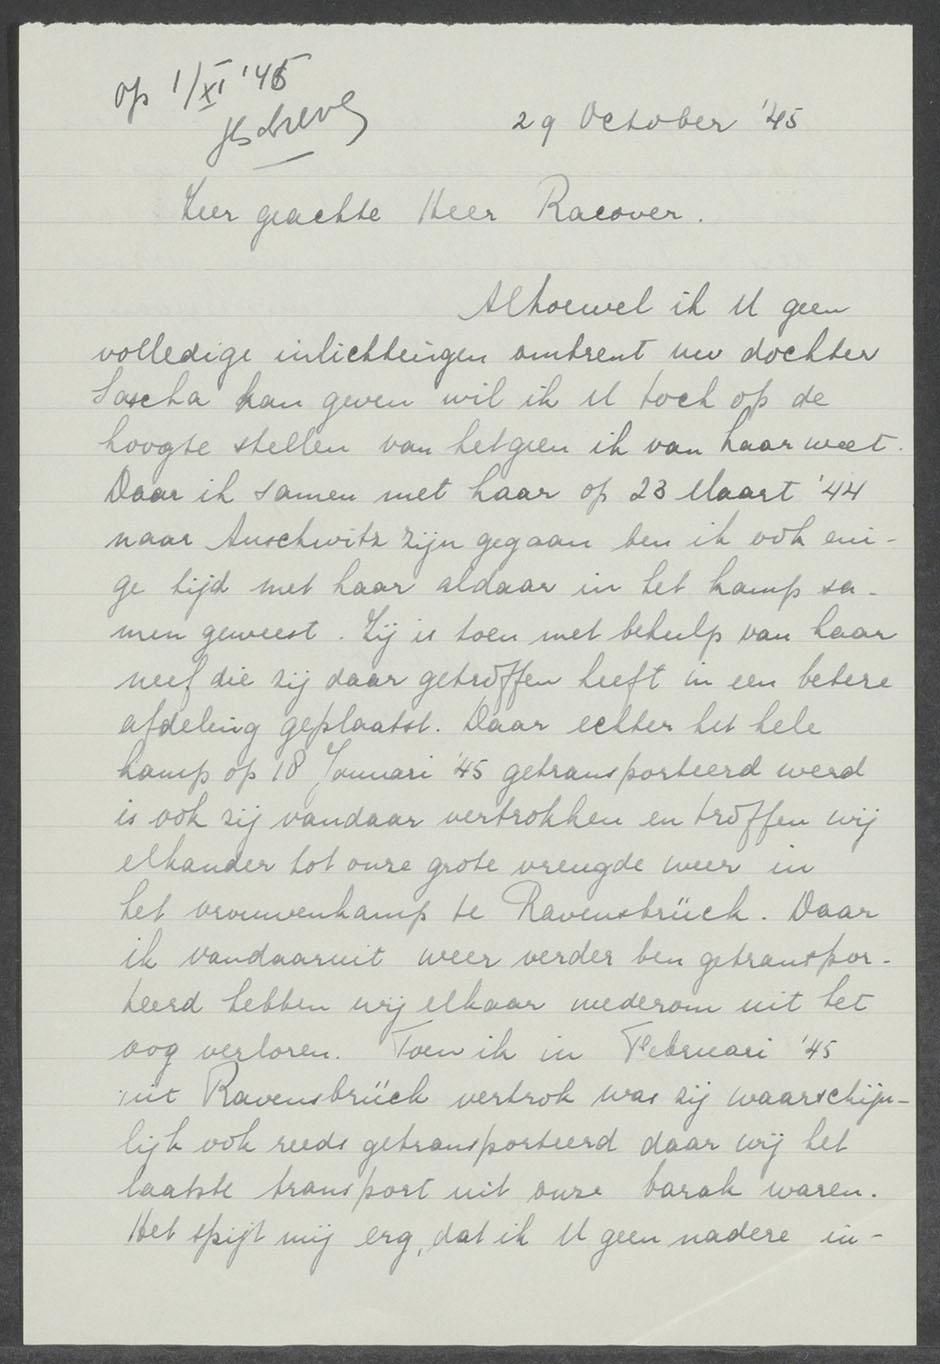 op 1/XI '45
29 October '45
Zeer geachte Heer Racover.
Alhoewel ik U geen
volledige inlichtingen omtrent uw dochter
Sascha kan geven wil ik U toch op de
hoogte stellen van hetgeen ik van haar weet.
Daar ik samen met haar op 23 Maart '44
naar Auschwitz zijn gegaan ben ik ook eni-
ge tijd met haar aldaar in het kamp sa-
men geweest. Zij is toen met behulp van haar
neef die zij daar getroffen heeft in een betere
afdeling geplaatst. Daar echter het hele
kamp op 18 Januari '45 getransporteerd werd
is ook zij vandaar vertrokken en troffen wij
elkander tot onze grote vreugde weer in
het vrouwenkamp te Ravensbrück. Daar
ik vandaaruit weer verder ben getranspor-
teerd hebben wij elkaar wederom uit het
oog verloren. Toen ik in Februari '45
uit Ravensbrück vertrok was zij waarschijn-
lijk ook reeds getransporteerd daar wij het
laatste transport uit onze barak waren.
Het spijt mij erg, dat ik U geen nadere in-